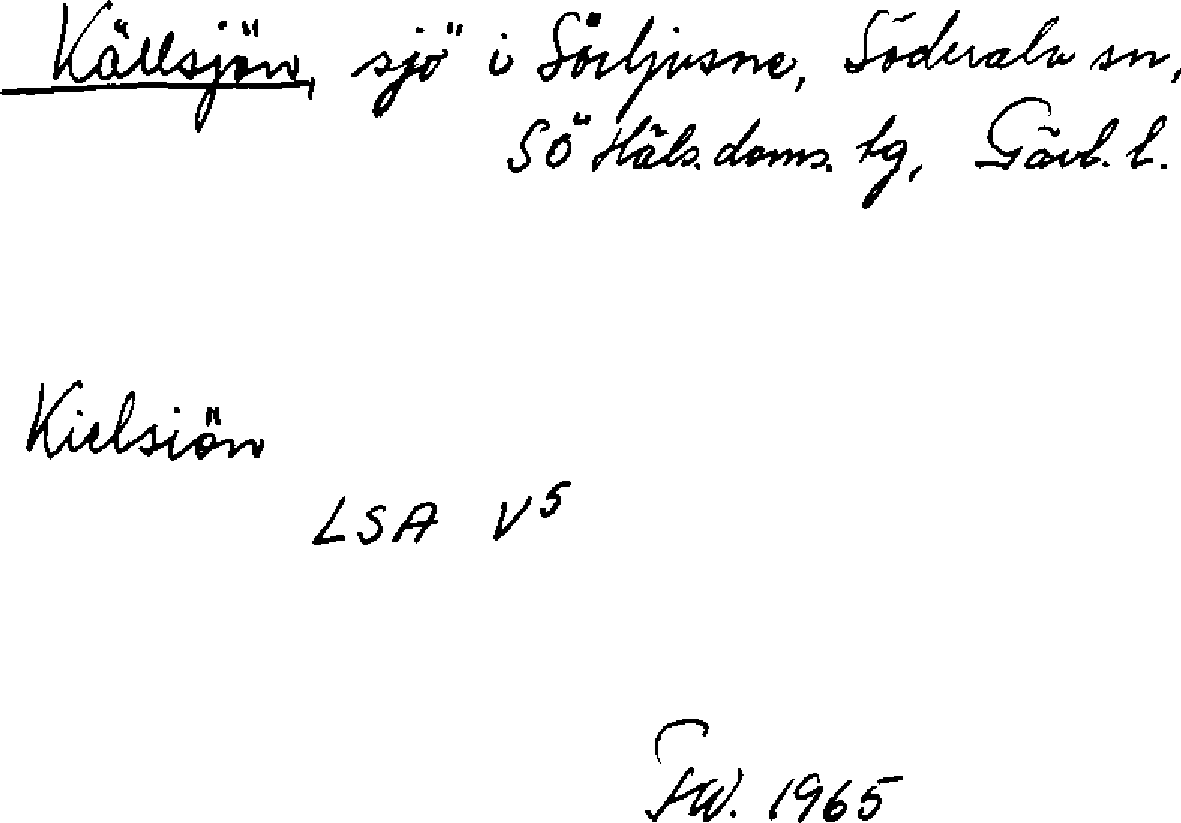 Källsjön, sjö i Sörljusne, Söderala sn,
SÖ Häls. doms. tg, Gävl. l.
Kielsiön
LSA V5
1965